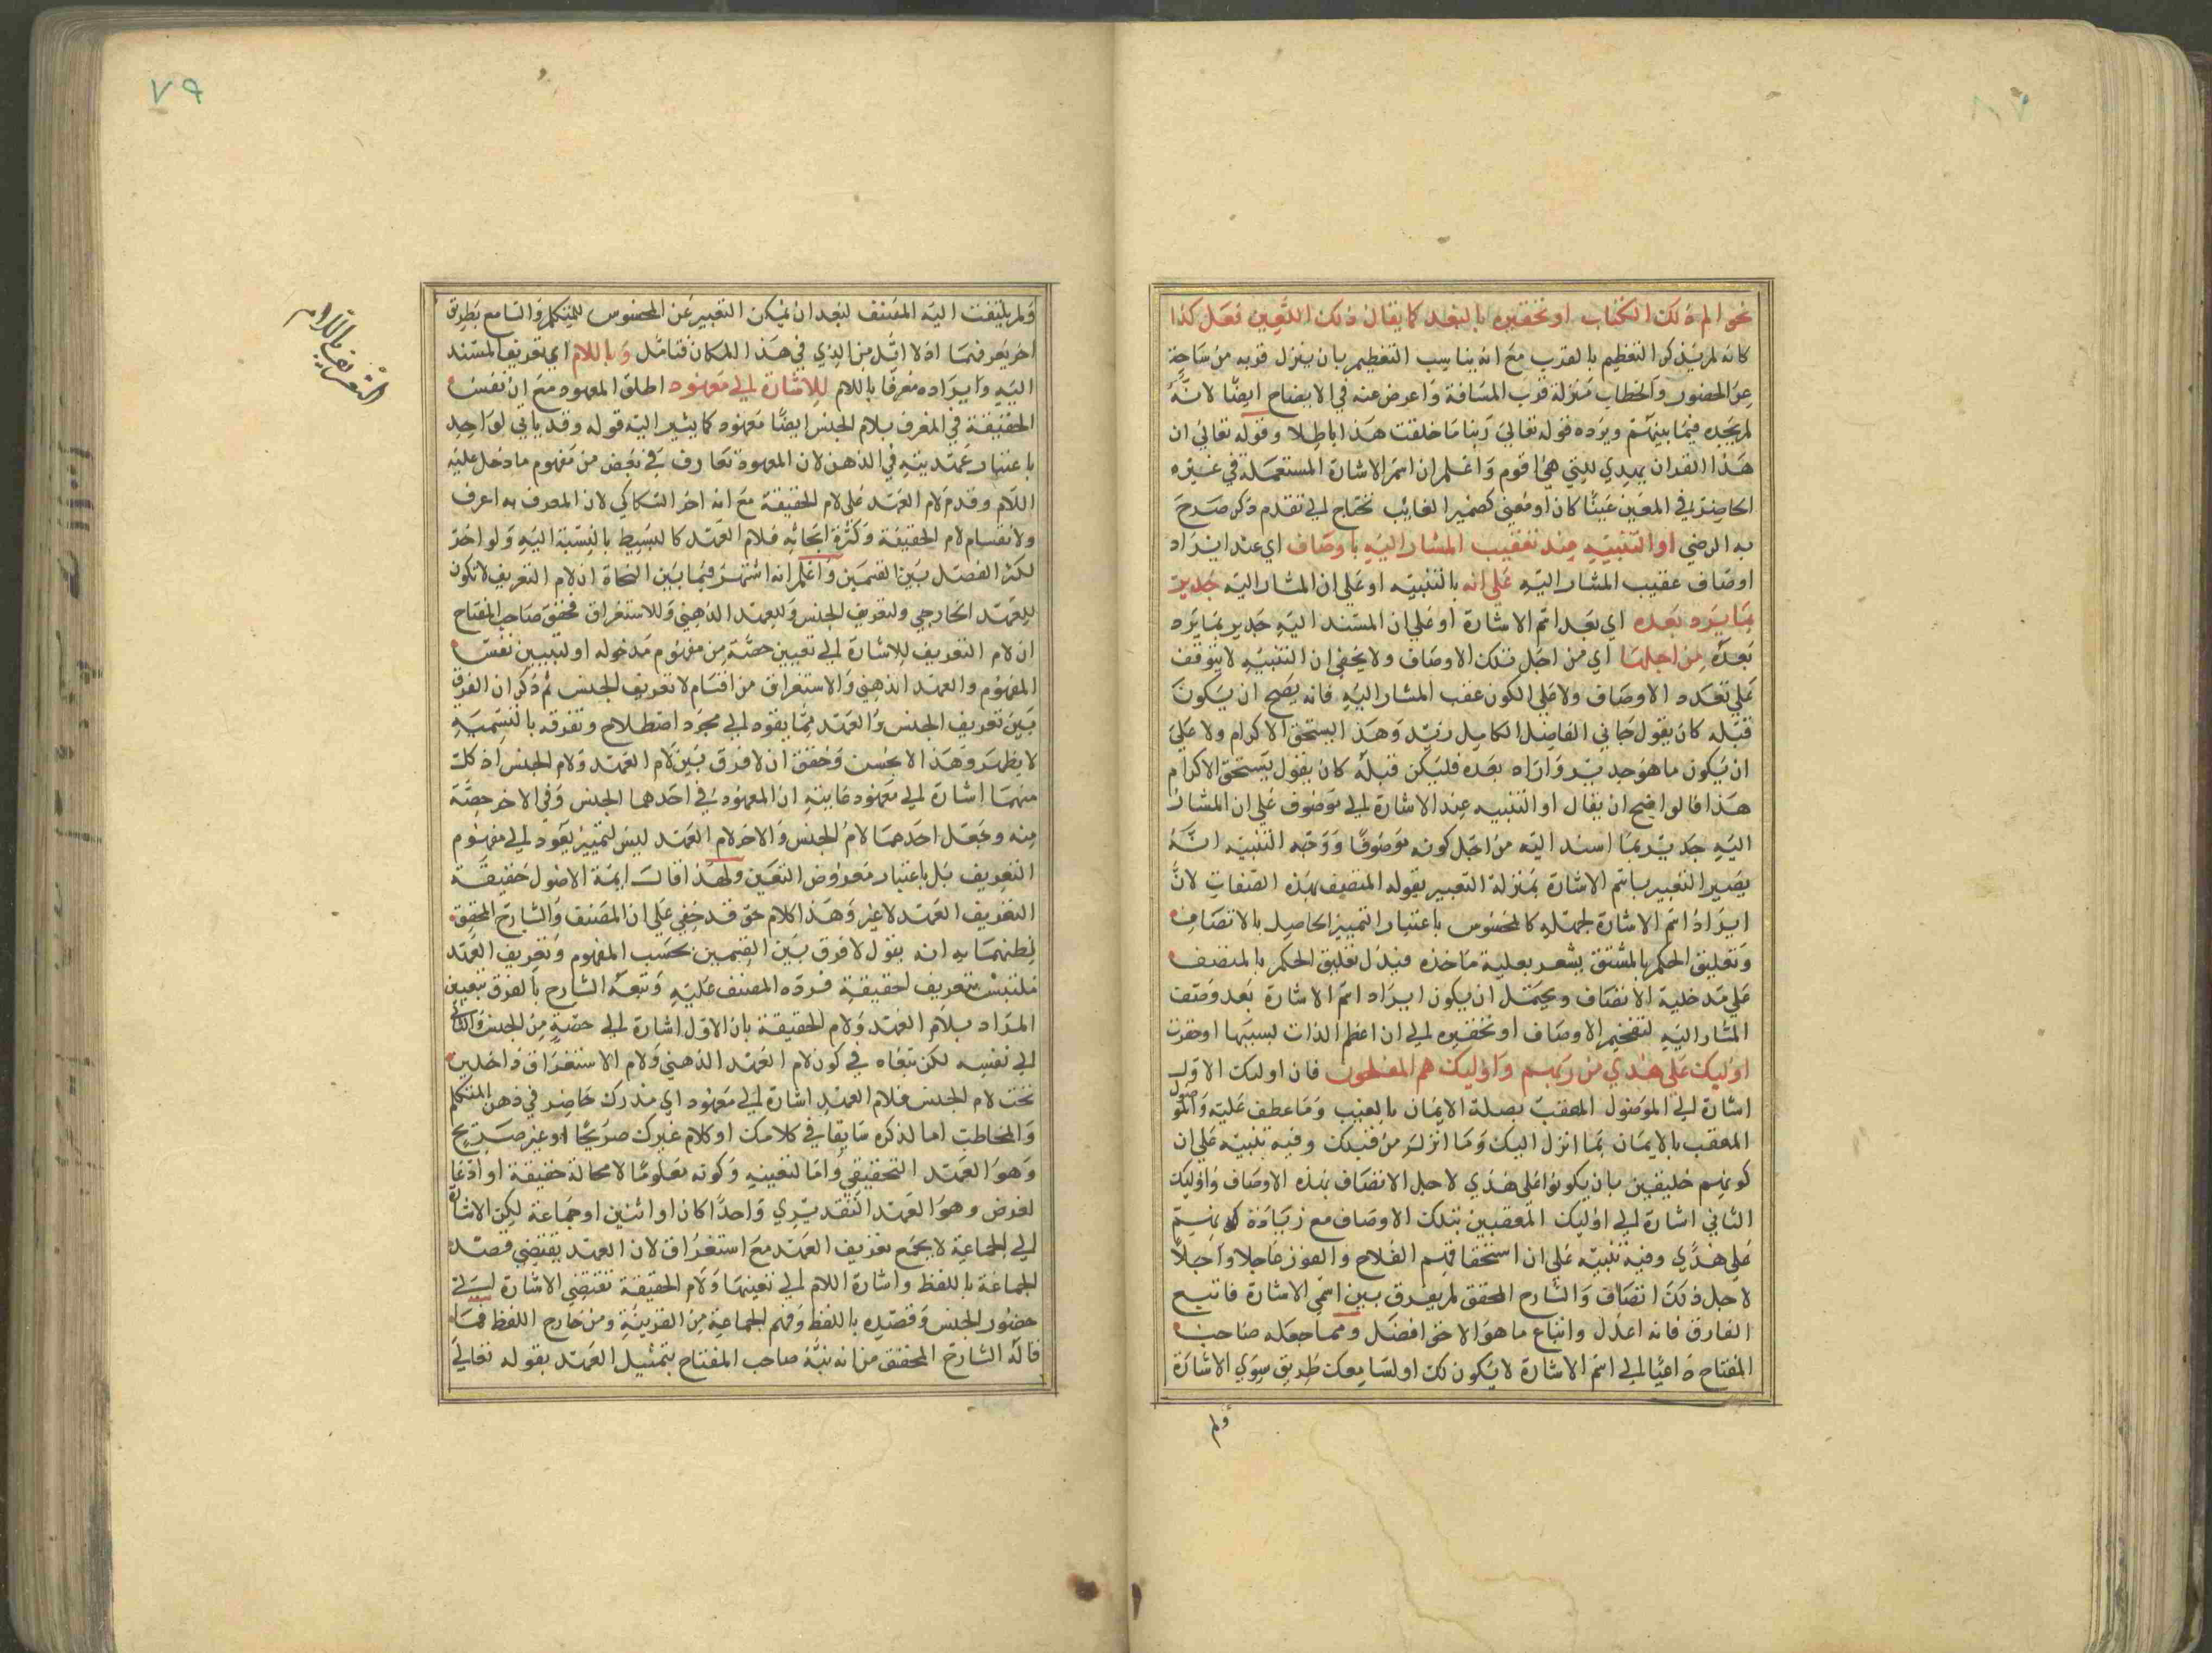 نحو الم ذلك الكتاب او تحقيره بالبعد كما يقال ذلك اللعين فعل كذا
كانه لم يذكر التعظيم بالقرب مع انه يناسب التعظيم بان ينزل قربه من ساحة
عز الحضور والخطاب منزلة قرب المسافة واعرض عنه في الايضاح ايضا لانه
لم يجده فيما بينهم ويرده قوله تعالى ربنا ما خلقت هذا باطلا وقوله تعالى ان
هذا القران يهدي للتي هي اقوم واعلم ان اسم الاشارة المستعملة في غيره
الحاضر في المعين عينا كان او معنى كضمير الغائب تحتاج الى تقدم ذكر صرح
به الرضي او التنبيه عند تعقيب المشار اليه باوصاف اي عند ايراد
اوصاف عقيب المشار اليه على انه بالتنبيه او على ان المشار اليه جدير
بما يرد بعده اي بعد اسم الاشارة او على ان المسند اليه جدير بما يرد
بعده من اجلها اي من اجل تلك الاوصاف ولا يخفى ان التنبيه لا يتوقف
على تعدد الاوصاف ولا على الكون عقب المشار اليه فانه يصح ان يكون
قبله كان يقول جاني الفاضل الكامل زيد وهذا يستحق الاكرام ولا على
ان يكون ما هو جدير وارادا بعده فليكن قبله كان يقول يستحق الاكرام
هذا فالواضح ان يقال او التنبيه عند الاشارة الى موصوف على ان المشار
اليه جدير بما اسند اليه من اجل كونه موصوفا ووجه التنبيه انه
يصير التعبير باسم الاشارة بمنزلة التعبير بقوله المتصف بهذه الصفات لان
ايراد اسم الاشارة لجعله كالمحسوس باعتبار التمييز الحاصل بالاتصاف
وتعليق الحكم بالمشتق يشعر بعلية ماخذه فيدل تعليق الحكم بالمتصف
على مدخلية الاتصاف ويحتمل ان يكون ايراد اسم الاشارة بعد وصف
المشار اليه لتفخيم الاوصاف او تحقيره الى ان اعظم الذات لسببها او حقرت
اوليك على هدي من ربهم واوليك هم المفلحون فان اوليك الاول
اشارة الى الموصول المعقب بصلة الايمان بالغيب وما عطف عليه والموصول
المعقب بالايمان بما انزل اليك وما انزل من قبلك وفيه تنبيه على ان
كونهم خليقين بان يكونوا على هدي لاجل الاتصاف بهذه الاوصاف واوليك
الثاني اشارة الى اوليك المعقبين بتلك الاوصاف مع زيادة كونهم
على هدي وفيه تنبيه على ان استحقاقهم الفلاح والفوز عاجلا واجلا
لاجل ذلك اتصاف والشارح المحقق لم يفرق بين اسمي الاشارة فاتبع
الفارق فانه اعدل واتباع ما هو الاحق افضل ومما جعله صاحب
المفتاح داعيا الى اسم الاشارة لا يكون لك او لسامعك طريق سوي الاشارة
ولم
٧٩
التعريف باللام
ولم يلتفت اليه المصنف لبعد ان يمكن التعبير عن المحسوس للمتكلم والسامع بطريق
اخر يعرفها اذ لا اقل من الذي في هذا المكان فتامل وباللام اي تعريف المسند
اليه وايراده معرفا باللام للاشارة الى معهود اطلق المعهود مع ان نفس
الحقيقة في المعرف بلام الجنس ايضا معهود كما يشير اليه قوله وقد ياتي لواحد
باعتبار عهديته في الذهن لان المعهود تعارف في بعض من مفهوم ما دخل عليه
اللام وقدم لام العهد على لام الحقيقة مع انه اخر السكاكي لان المعرف به اعرف
ولانقسام لام الحقيقة وكثرة ابحاثه فلام العهد كالبسيط بالنسبة اليه ولو اخر
لكثر الفصل بين القسمين واعلم انه اشتهر فيما بين النحاة ان لام التعريف لا تكون
للعهد الخارجي ولتعريف الجنس وللعهد الذهني وللاستغراق فحقق صاحب المفتاح
ان لام التعريف للاشارة الى تعيين حصة من مفهوم مدخوله او لتعيين نفس
المفهوم والعهد الذهني والاستغراق من اقسام لا تعريف الجنس ثم ذكر ان الفرق
بين تعريف الجنس والعهد مما يقود الى مجرد اصطلاح وتفرقه بالتسمية
لا يظهر وهذا الا يحسن وحقق ان لا فرق بين لام العهد ولام الجنس اذ كل
منهما اشارة الى معهود غايته ان المعهود في احدهما الجنس وفي الاخر حصة
منه وجعل احدهما لام الجنس والاخر لام العهد ليس لتمييز يعود الى مفهوم
التعريف بل باعتبار معروض التعين ولهذا قال ايمة الاصول حقيقة
التعريف العهد لا غير وهذا كلام حق قد خفي على ان المصنف والشارح المحقق
لظنهما به انه يقول لا فرق بين القسمين بحسب المفهوم وتعريف العهد
ملتبس بتعريف الحقيقة فرده المصنف عليه وتبعه الشارح بالفرق بتعيين
المراد بلام العهد ولام الحقيقة بان الاول اشارة الى حصة من الجنس والثاني
الى نفسه لكن تبعاه في كون لام العهد الذهني ولام الاستغراق داخلين
تحت لام الجنس فلام العهد اشارة الى معهود اي مدرك حاضر في ذهن المتكلم
والمخاطب اما لذكره سابقا في كلامك او كلام غيرك صريحا او غير صريح
وهو العهد التحقيقي واما لتعينه وكونه معلوما لا محالة حقيقة او ادعا
لغرض وهو العهد التقديري واحدا كان او اثنين او جماعة لكن الاشارة
الى الجماعة لا يجمع تعريف العهد مع استغراق لان العهد يقتضي قصد
الجماعة باللفظ واشارة اللام الى تعينها ولام الحقيقة تقتضي الاشارة الى
حضور الجنس وقصده باللفظ وفهم الجماعة من القرينة ومن خارج اللفظ فما
قاله الشارح المحقق من انه نبه صاحب المفتاح بتمثيل العهد بقوله تعالى